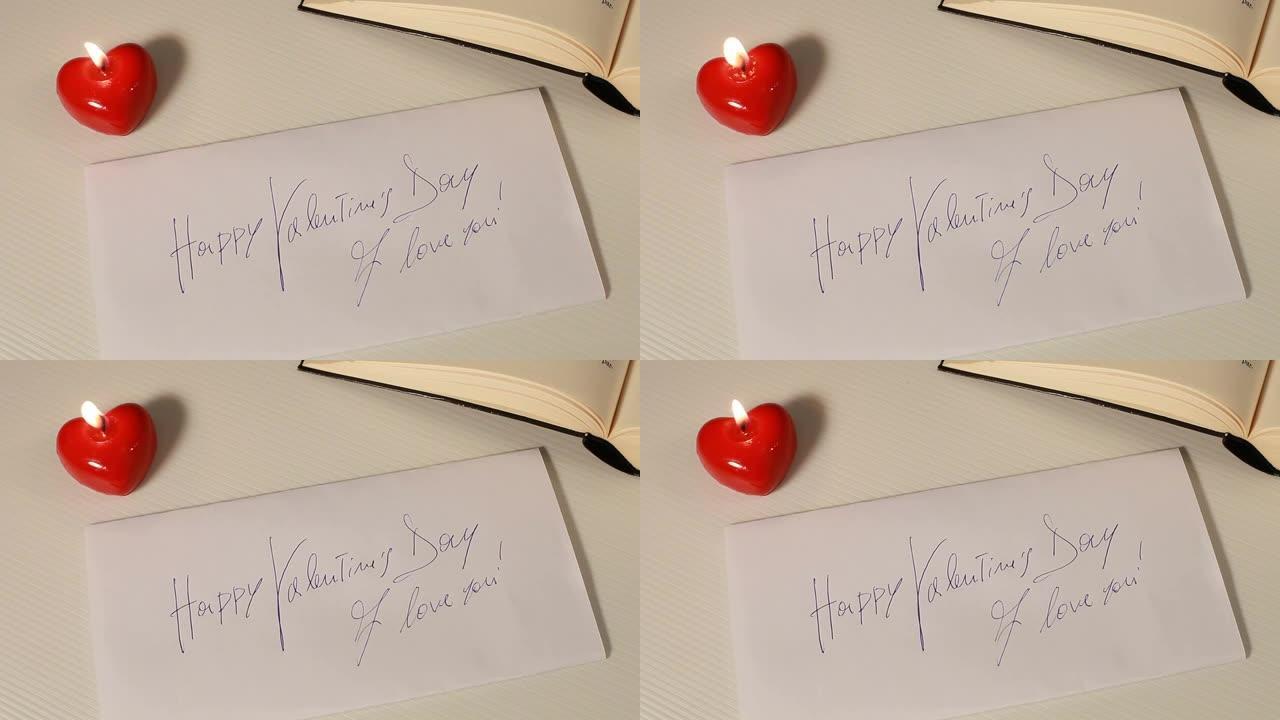 Happy Valentine's Day
I love you!
Happy Valentine's Day
I love you!
Happy Valentine's Day
I love you!
Happy Valentine's Day
I love you!